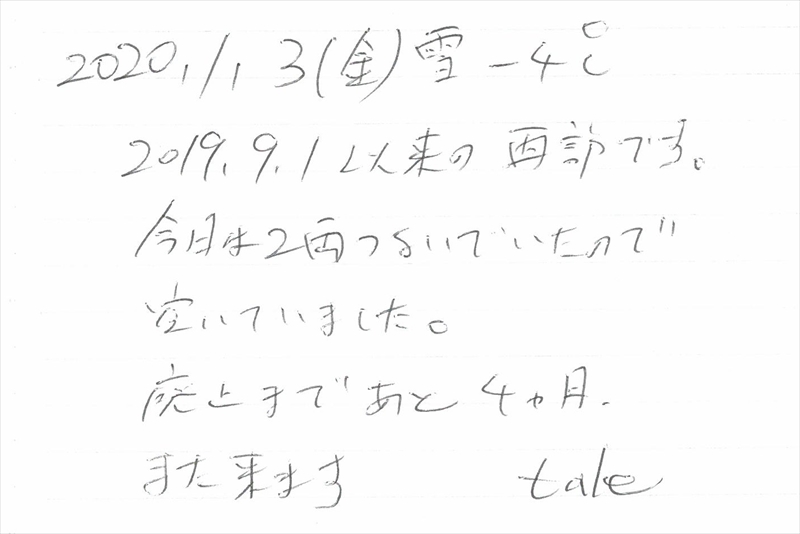 2020,1,3(金)雪-4℃
2019.9.1以来の再訪です。
今日は2両つないでいたので
空いていました。
廃止まであと4ヵ月.
また来ます take